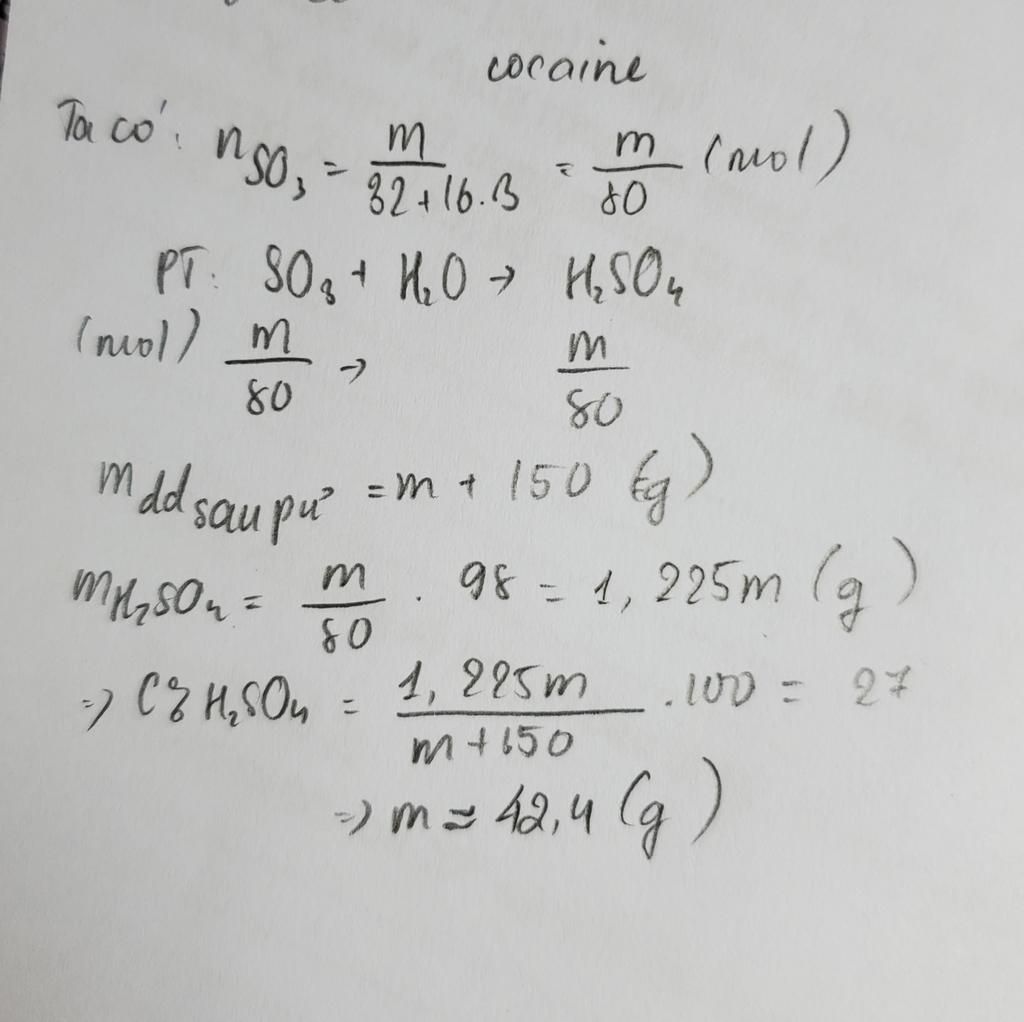 cocaine
Ta có: nSO₃ = m/(32+16.3) = m/80 (mol)
PT: SO₃ + H₂O → H₂SO₄
(mol) m/80 → m/80
mdd sau pư = m + 150 (g)
mH₂SO₄ = m/80 . 98 = 1,225m (g)
=> C% H₂SO₄ = 1,225m/(m+150) .100 = 27
=> m ≈ 42,4 (g)